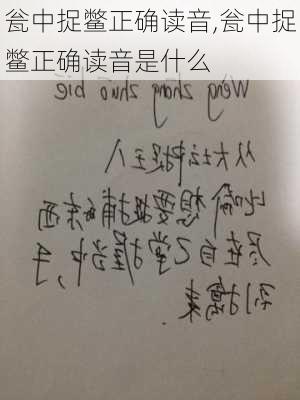 瓮中捉鳖正确读音,瓮中捉
鳖正确读音是什么
Wèng zhōng zhuō biē
从大坛中捉王八
比喻想要捉捕的东西
尽在自己掌握当中,手
到擒来